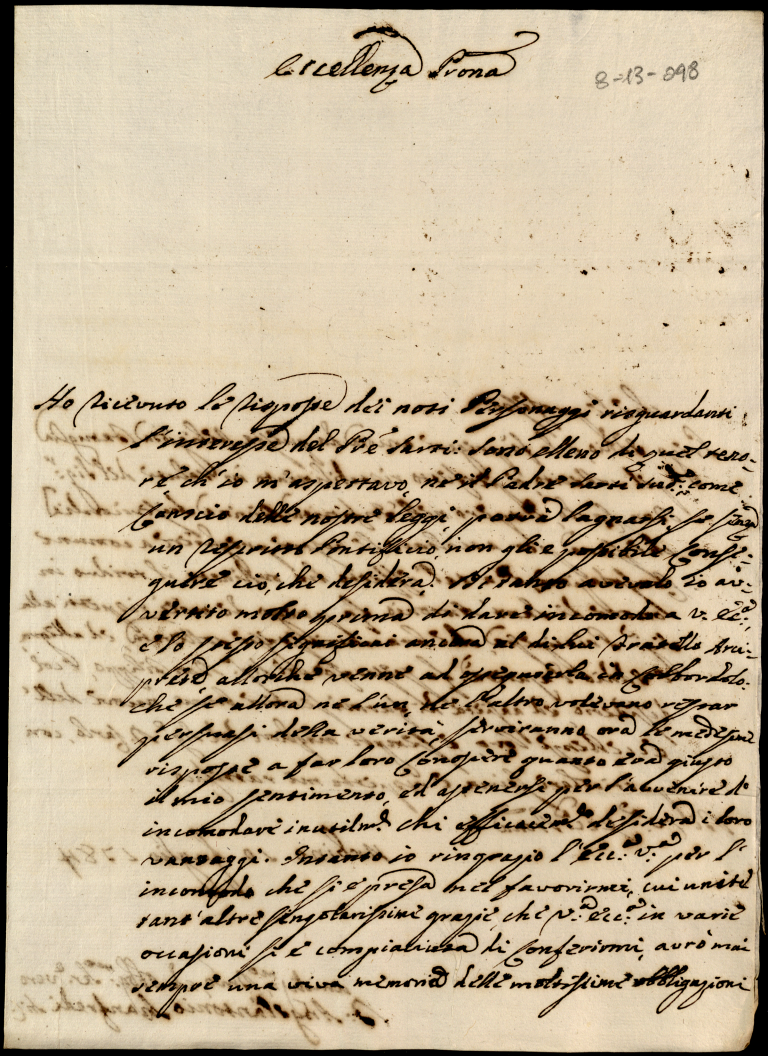 Eccellenza Prona
8-13-098
Ho ricevuto le risposte dei noti Personaggi risguardanti
l'interesse del Pre Sarti: sono elleno di quel teno-
re ch'io m'aspettavo, ne il Padre Sarti sud.º come
Conscio delle nostre leggi, potrà lagnarsi, se senza
un rescritto Pontificio, non gli è possibile Conse-
guire ciò, che desidera. Di tanto avevalo io av-
vertito molto prima di dare incomodo a V. Ecc.ª,
e lo stesso significai ancora al di lui Fratello Arci-
prete allorchè venne ad in Colbordolo:
che se allora ne l'un, ne l'altro volevano restar
persuasi della verità, serviranno ora le medesime
risposte a far loro Conoscere quanto era giusto
il mio sentimento, ed astenersi per l'avvenire d'
incomodare inutilm.e chi efficacem.e desidera i loro
vantaggi. Intanto io ringrazio l'Ecc.ª V.ª per l'
incomodo che si è presa nel favorirmi, cui unite
tant'altre singolarissime grazie, che V.ª Ecc.ª in varie
occasioni si è compiaciuta di Conferirmi, avrò mai
sempre una viva memoria delle moltissime obbligazioni